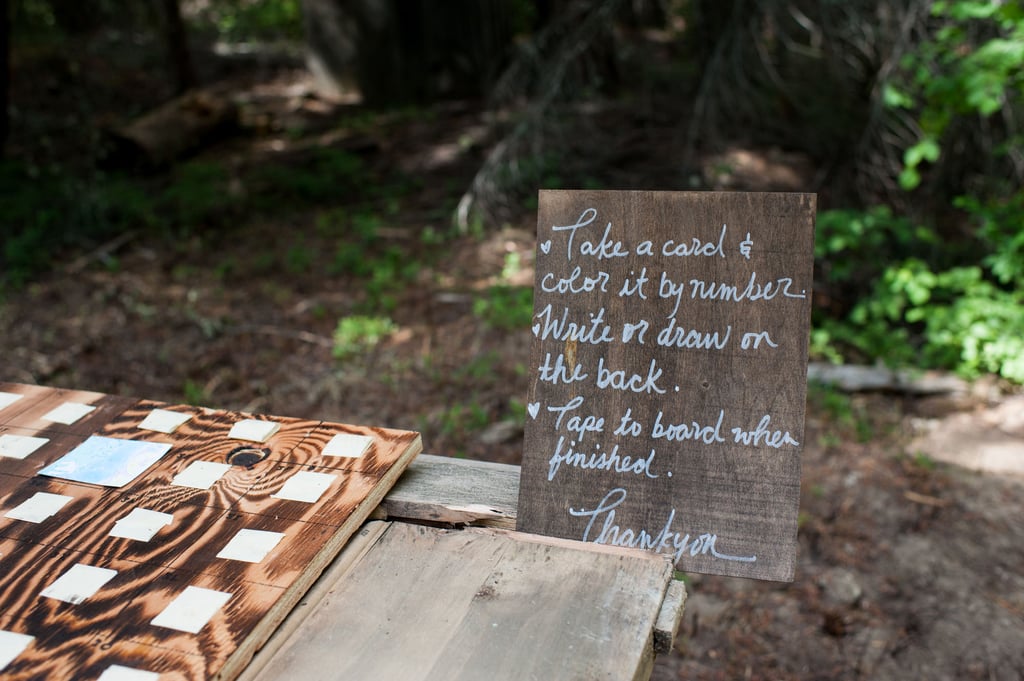 Take a card &
color it by number.
Write or draw on
the back.
Tape to board when
finished.
Thankyou